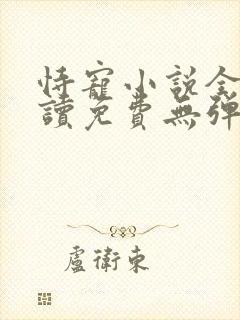 恃寵小說全
讀免費無彈
盧衛東